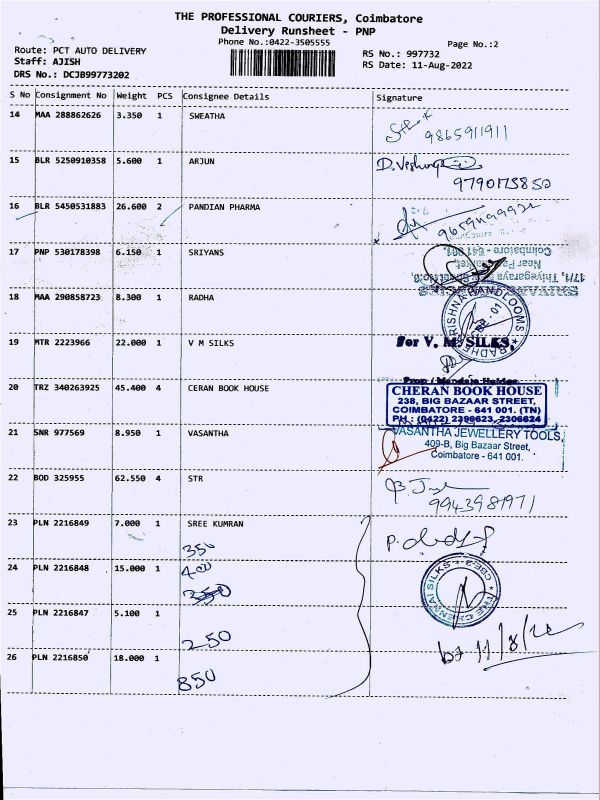 THE PROFESSIONAL COURIERS, Coimbatore
Delivery Runsheet - PNP
Phone No.:0422-3505555
Page No.:2
Route: PCT AUTO DELIVERY
Staff: AJISH
DRS No.: DCJB99773202
RS No.: 997732
RS Date: 11-Aug-2022
S No Consignment No Weight PCS Consignee Details Signature
14 MAA 288862626 3.350 1 SWEATHA
9865911911
15 BLR 5250910358 5.600 1 ARJUN
D.
9790175850
16 BLR 5450531883 26.600 2 PANDIAN PHARMA
17 PNP 530178398 6.150 1 SRIYANS
17/1, Thiyegaraya
Near
Coimbatore - 641 001.
18 MAA 290858723 8.300 1 RADHA
RADHE KRISHNA HANDLOOMS
19 MTR 2223966 22.000 1 V M SILKS
For V. M. SILKS,
20 TRZ 340263925 45.400 4 CERAN BOOK HOUSE
CHERAN BOOK HOUSE
238, BIG BAZAAR STREET,
COIMBATORE - 641 001. (TN)
PH : (0422) 2396623, 2306624
21 SNR 977569 8.950 1 VASANTHA
VASANTHA JEWELLERY TOOLS,
409-B, Big Bazaar Street,
Coimbatore - 641 001.
22 BOD 325955 62.550 4 STR
9943981971
23 PLN 2216849 7.000 1 SREE KUMRAN
350
P.
24 PLN 2216848 15.000 1
400
350
THE CHENNAI SILKS CBE2
25 PLN 2216847 5.100 1
250
11/8/22
26 PLN 2216850 18.000 1
850